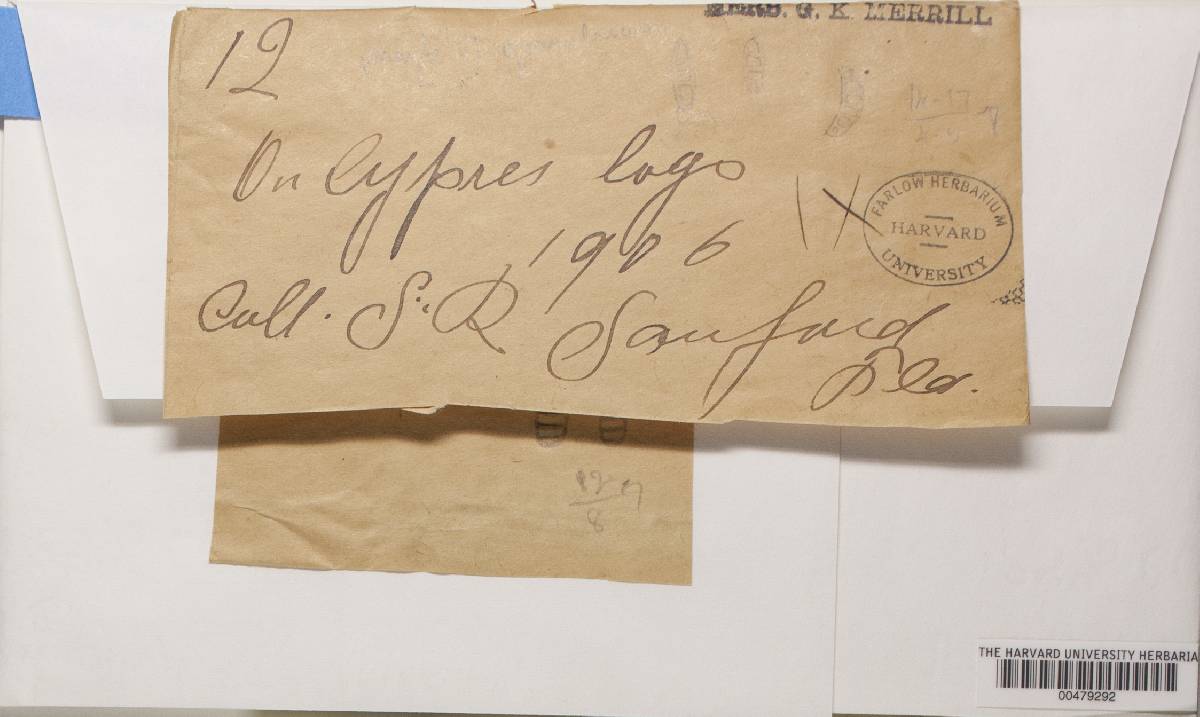 HERB. G. K. MERRILL
12
On Cypres logs
1906
Coll. S. R Sanford
Fla.
FARLOW HERBARIUM
HARVARD
UNIVERSITY
12
8
THE HARVARD UNIVERSITY HERBARIA
00479292